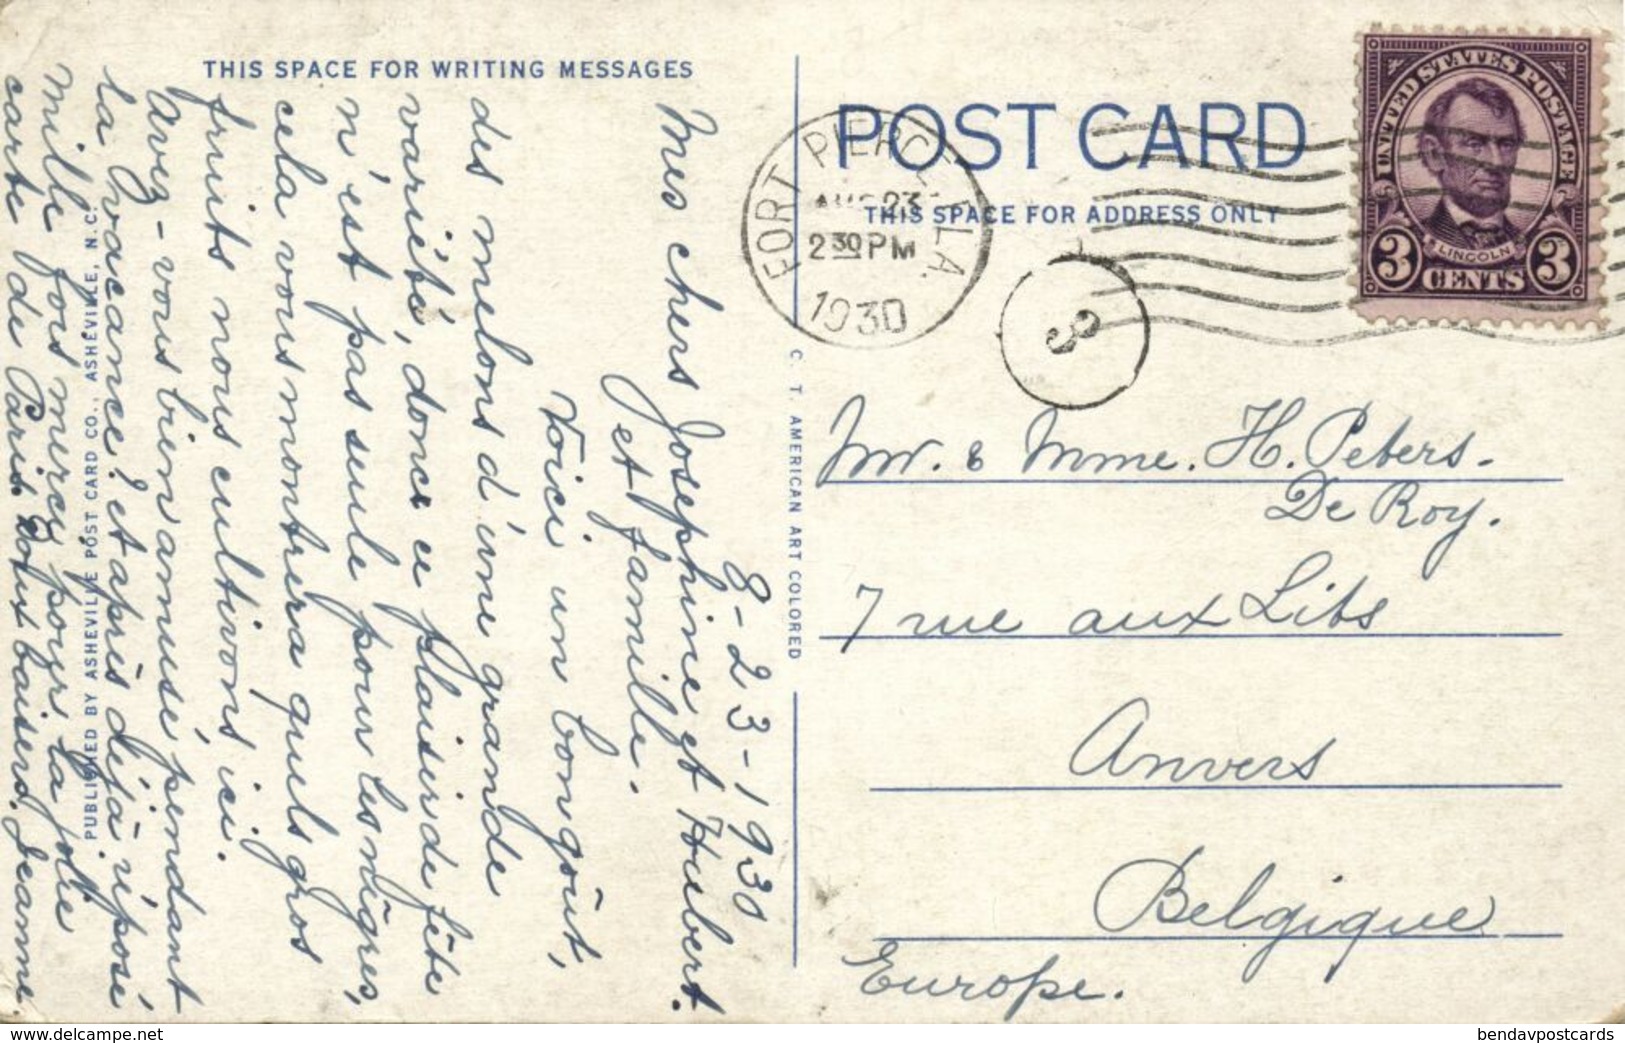 THIS SPACE FOR WRITING MESSAGES
8-23-1930
Mes chers Josephine et Hubert.
et famille.
Voici un bon goût,
des melons d'une grande
variété, donc ce plaisir de fête
n'est pas seule pour les nègres,
cela vous montrera quels gros
fruits nous cultivons ici.
Avez-vous bien amusé pendant
la vacance? et après déjà réposé
Mille fois mercis pour la jolie
carte de Paris. Doux baisers. Jeanne
PUBLISHED BY ASHEVILLE POST CARD CO., ASHEVILLE, N. C.
C. T. AMERICAN ART COLORED
POST CARD
THIS SPACE FOR ADDRESS ONLY
FORT PIERCE FLA.
AUG 23
2 30 PM
1930
3
UNITED STATES POSTAGE
LINCOLN
3 CENTS 3
Mr. & Mme. H. Peters.
De Roy.
7 rue aux Lits
Anvers
Belgique
Europe.
www.delcampe.net
bendavpostcards